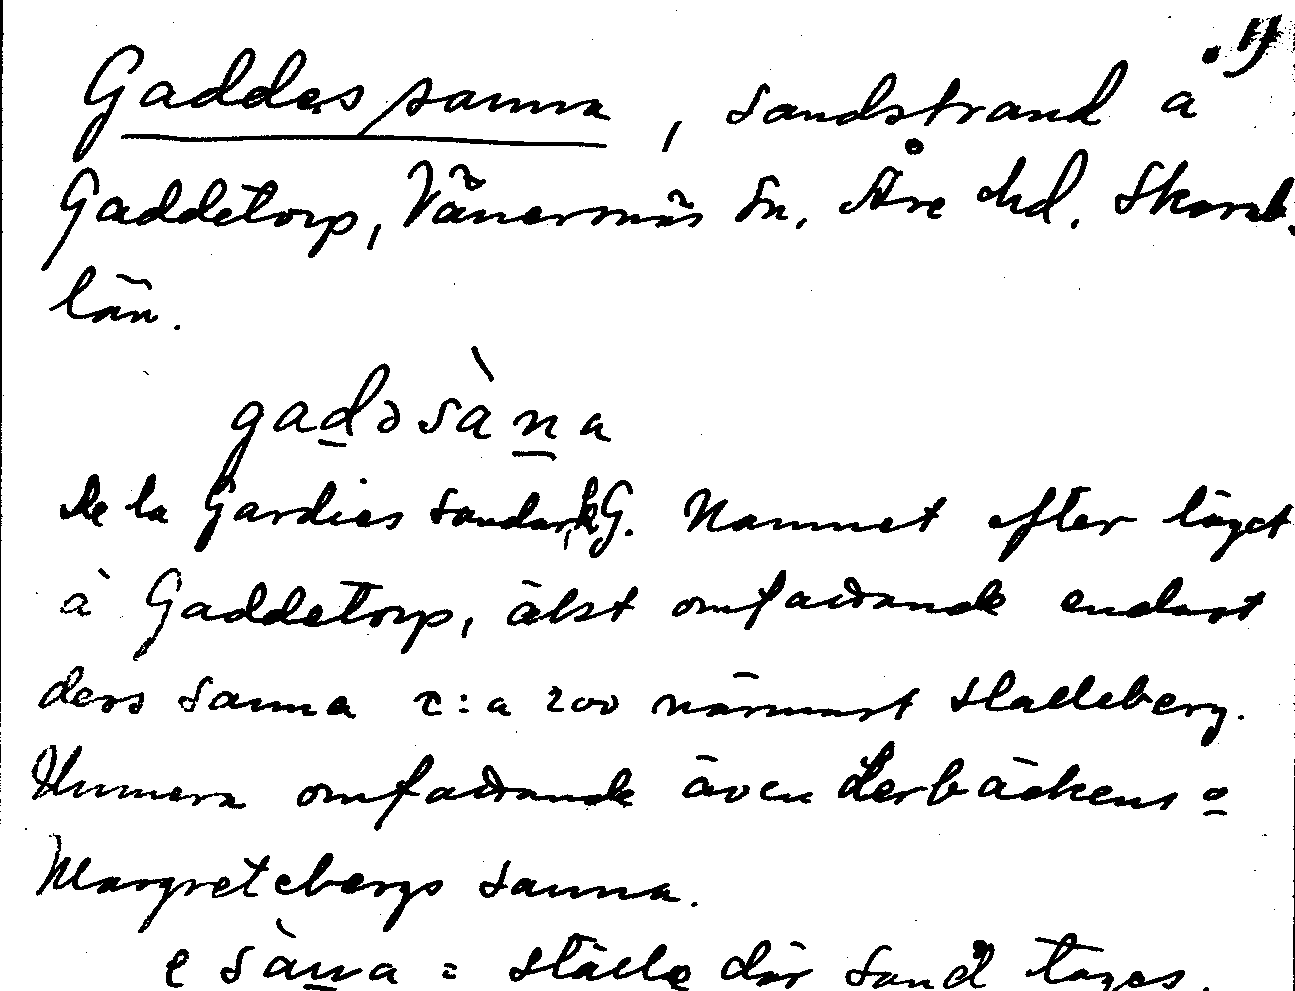 Gaddes sanna, sandstrand å
Gaddetorp, Vänersnäs sn. Åse hd. Skarab.
län.
gadəsàna
De la Gardies sandar, kG. Namnet efter läget
å Gaddetorp, älst omfattande endast
ders sanna c:a 200 närmast Halleberg.
Numera omfattande även Lerbäckens o
Margretebergs sanna.
e sàna = ställe där sand tages.